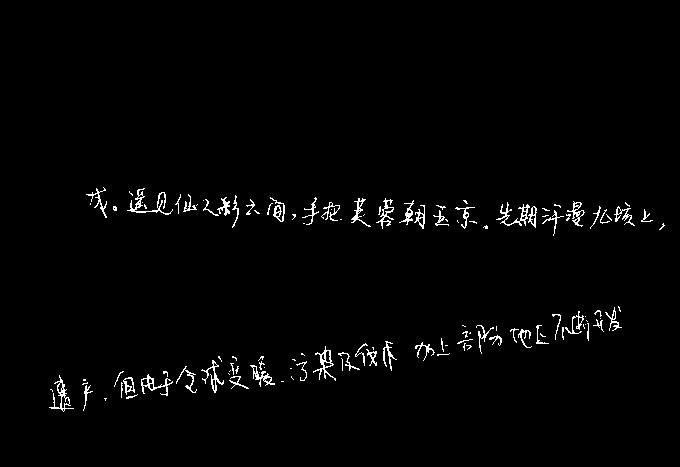 成。遥见仙人彩云间，手把芙蓉朝玉京。先期汗漫九垓上，
遗产，但由于全球变暖、污染及伐木 加上部份地区不断开发